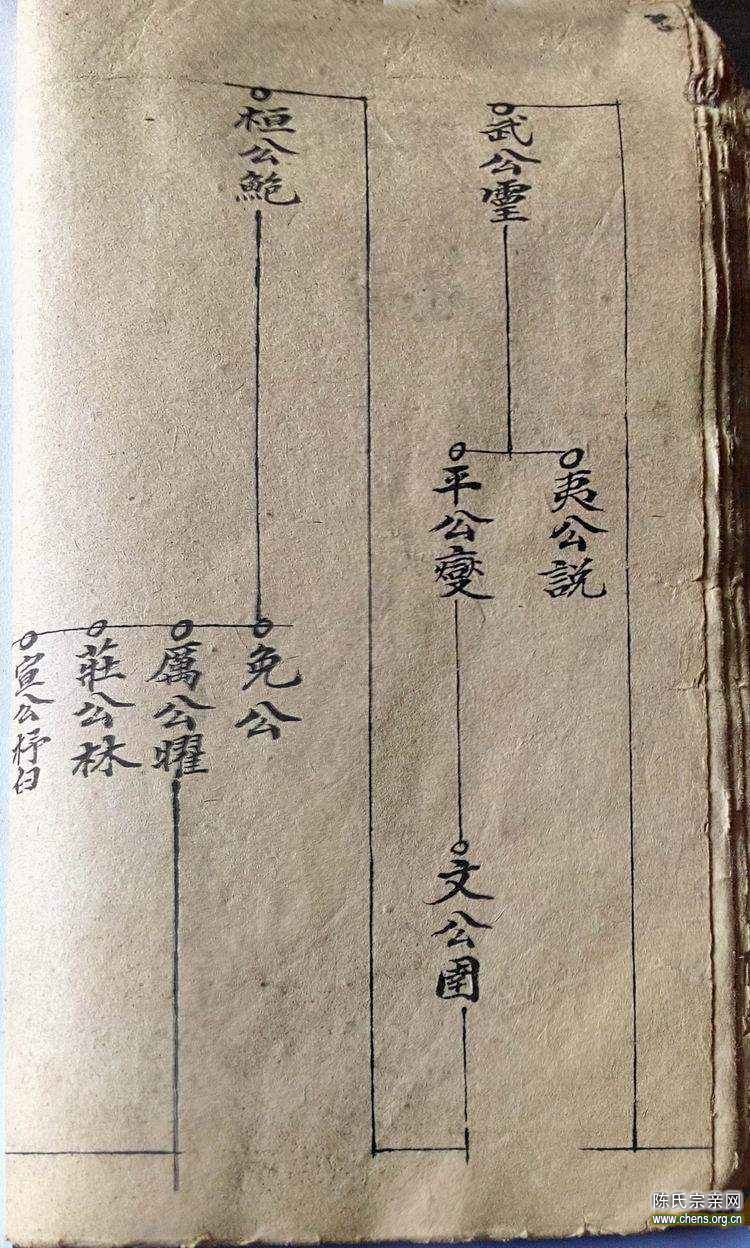 武公靈
夷公説
平公燮
文公圉
桓公鮑
免公
厲公曜
莊公林
宣公杼臼
陈氏宗亲网
www.chens.org.cn